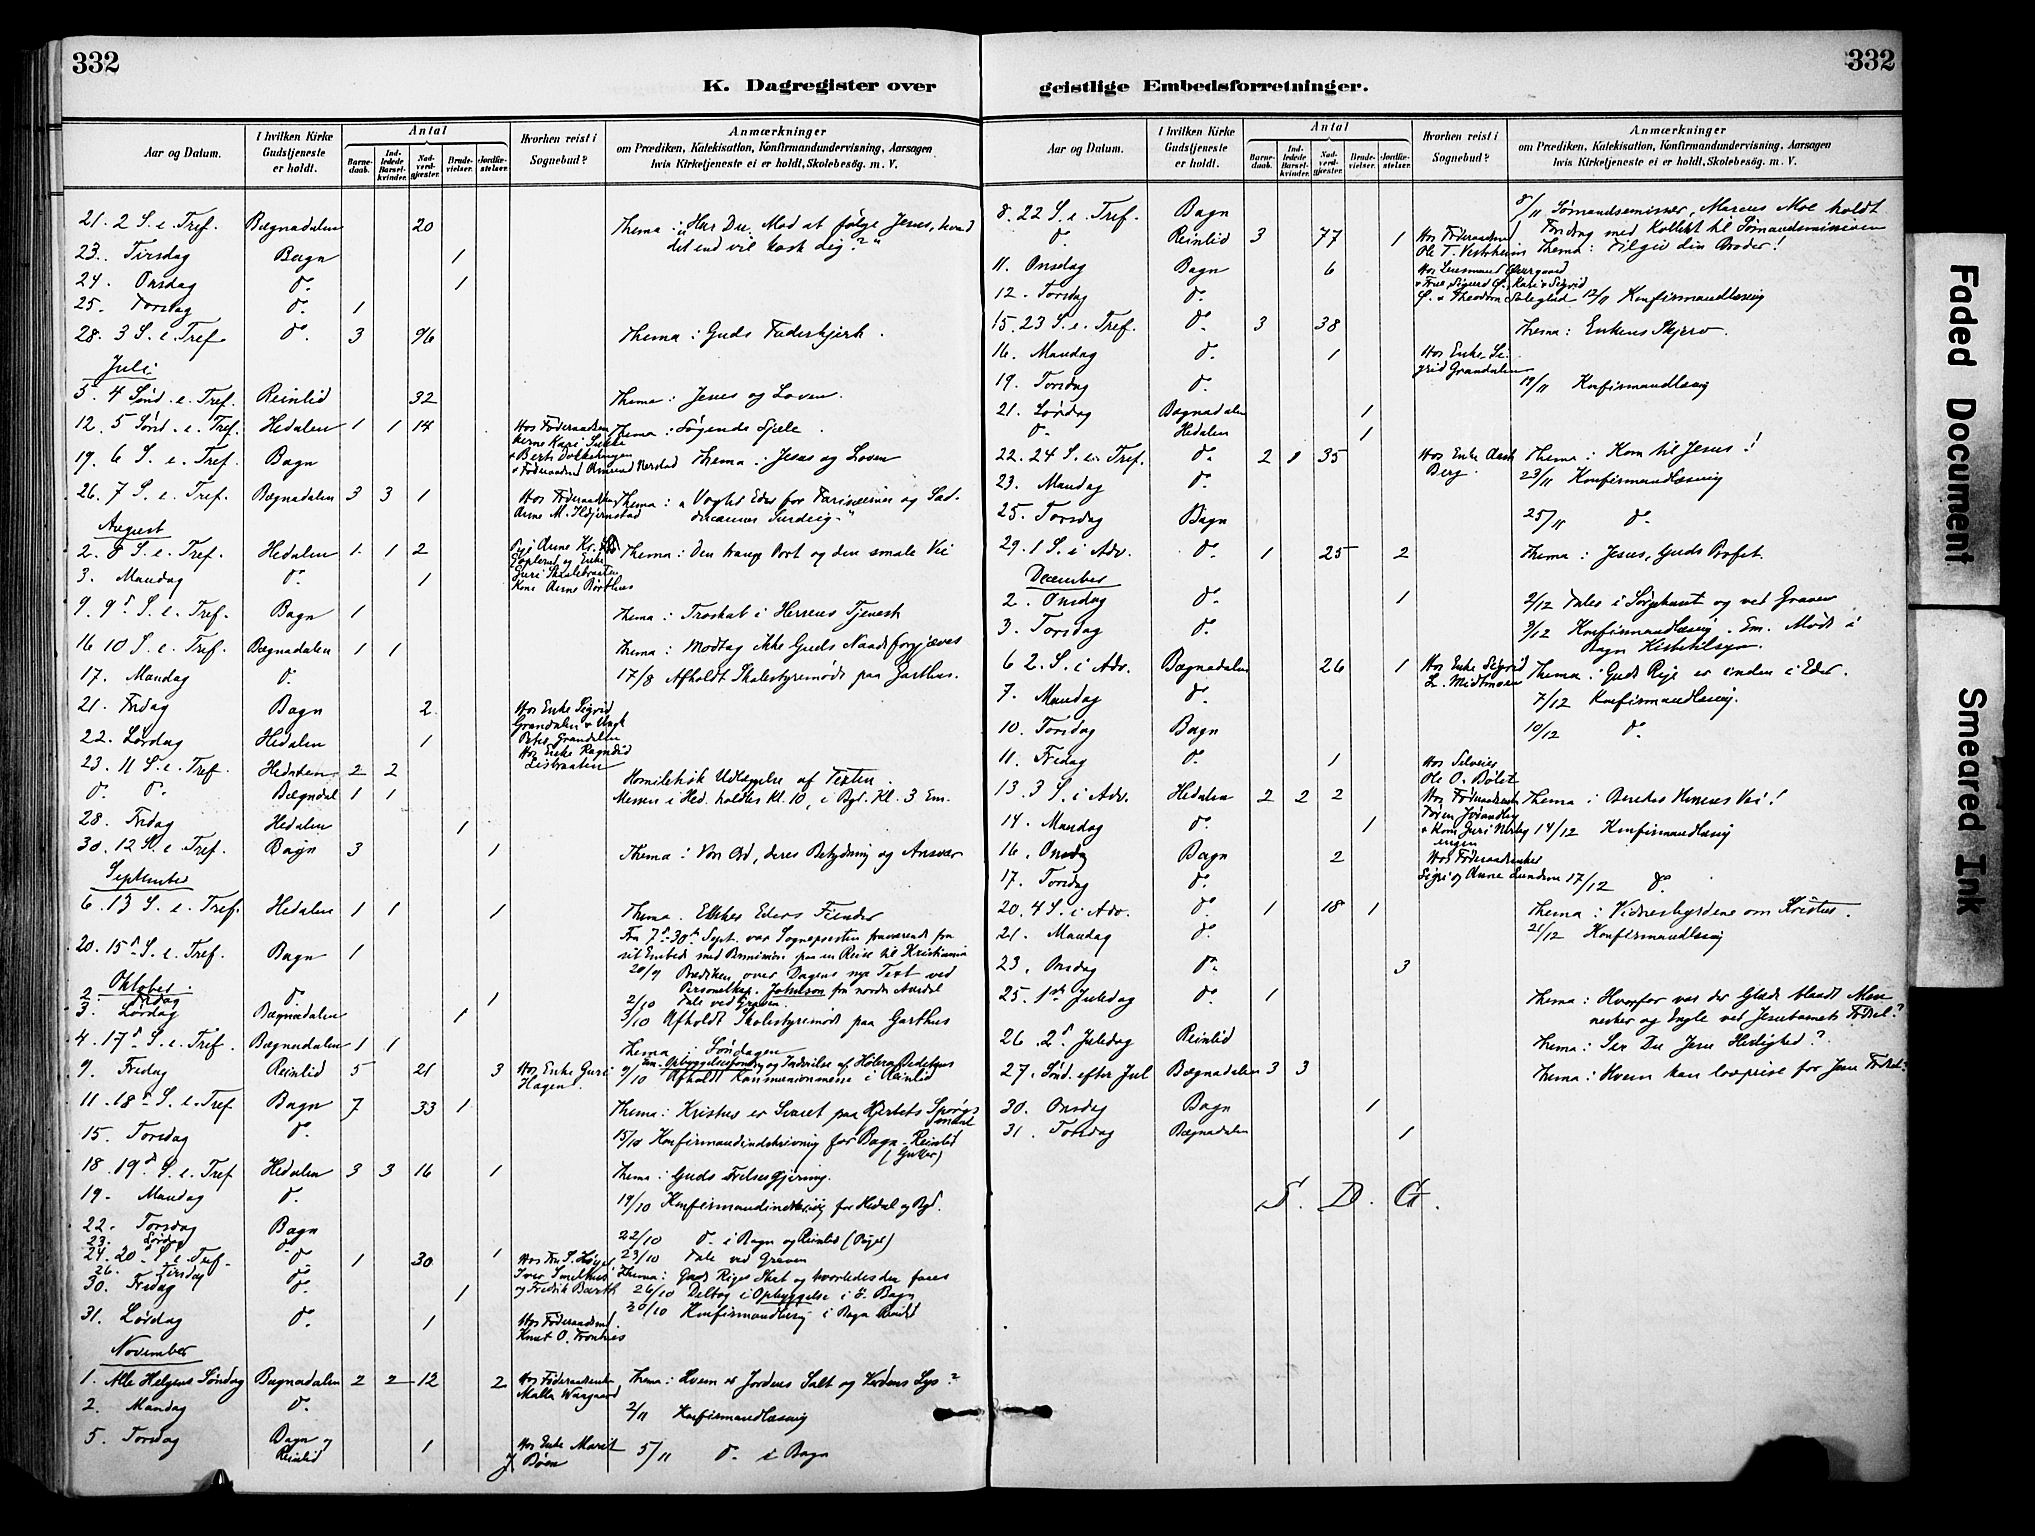 332
K. Dagregister over
Aar og Datum.
I hvilken Kirke Gudstjeneste er holdt.
Antal
Barne-daab.
Ind-ledede Barsel-kvinder.
Nad-verd-gjester.
Brude-vielser.
Jordfæ-stelser.
Hvorhen reist i Sognebud?
Anmærkninger
om Prædiken, Katekisation, Konfirmandundervisning, Aarsagen
hvis Kirketjeneste ei er holdt, Skolebesøg. m. V.
21. 2 S. e. Tref. Bægnadalen 20 Thema: "Har Du Mod at følge Jesus, hvad
det end vil koste dig?"
23. Tirsdag Bagn 1
24. Onsdag do. 1
25. Torsdag do. 1
28. 3 S. e. Tref. do. 3 96 Thema: Guds Faderhjerte.
Juli
5. 4 Sønd. e. Tref. Reinlid 32 Thema: Jesus og Loven.
12. 5 Sønd. e. Tref. Hedalen 1 1 14 Thema: Søgende Sjæle.
19. 6 S. e. Tref. Bagn Thema: Jesus og Loven
26. 7 S. e. Tref. Bægnadalen 3 3 1 Thema: "Vogter Eder for Farisæernes og Sad-
ducæernes Surdeig."
August
2. 8 S. e. Tref. Hedalen 1 1 2 Thema: Den trange Port og den smale Vei
3. Mandag do. 1
9. 9de S. e. Tref. Bagn 1 Thema: Troskab i Herrens Tjeneste
16 10 S. e. Tref. Bægnadalen 1 1 Thema: Modtag ikke Guds Naade forgjæves
17. Mandag do. 17/8 Afholdt Skolestyremøde paa Garthus.
21. Fredag Bagn 2 Hos Enke Sigrid
Grandalen
22. Lørdag Hedalen 1 Hos Enke Ragndid
23. 11 S. e. Tref. Hedalen 2 2 Homiletisk Udlæggelse af Texten.
do. do. Bægndal 1 1 Messen i Hed. holdtes Kl. 10, i Bgd. Kl. 3 Em.
28. Fredag Hedalen 1
30. 12 S. e. Tref. Bagn 3 1 Thema: Vore Ord, deres Betydning og Ansvar
September
6. 13 S. e. Tref. Hedalen 1 1 1 Thema. Elsker Eders Fiender
Fra 7de-30te Sept. var Sognepresten fraværende fra
sit Embede med Permission paa en Reise til Kristiania
20. 15de S. e. Tref. Bagn 1 20/9 Prædiken over Dagens nye Text ved
Personelkap. Johnson fra nordre Aurdal
Oktober.
2. Fredag do. 1 2/10 Tale ved Graven.
3. Lørdag Bægnadalen 1 3/10 Afholdt Skolestyremøde paa Garthus
4. 17de S. e. Tref. Bægnadalen 1 1 Thema: Søndagen
9. Fredag Reinlid 5 21 3 Hos Enke Guri
Hagen
9/10 Afholdt Kommunionmesse i Reinlid
11. 18de S. e. Tref Bagn 7 33 1 Thema: Kristus er Svaret paa Hjertets Spørgs
maal
15. Torsdag do. 15/10 Konfirmandindskrivning for Bagn - Reinlid
(Gutter)
18. 19de S. e. Tref Hedalen 3 3 16 1 Thema: Guds Frelsesgjerning.
19. Mandag do. 19/10 Konfirmandindskrivning for Hedal og Bgd.
22. Torsdag Bagn 22/10 do. i Bagn og Reinlid (Piger)
23. Lørdag do. 1 23/10 Tale ved Graven
24. 20 S. e. Tref. do. 1 30 Thema: Guds Riges Skat og hvorledes den faaes
26. Tirsdag do. 26/10 Deltog i Opbyggelse i Bagn
30. Fredag do. 1 Konfirmandlæsning i Bagn Reinlid
31. Lørdag do. 1 Hos Føderaadsmd.
Knut O.
November
1. Alle Helgens Søndag Bægnadalen 2 2 12 2 Thema: Hvem er Jordens Salt og Verdens Lys?
2. Mandag do. 2/11 Konfirmandlæsning
5. Torsdag Bagn og
Reinlid 1 Hos Enke Marit
Bøen 5/11 do. i Bagn
332
geistlige Embedsforretninger.
Aar og Datum.
I hvilken Kirke Gudstjeneste er holdt.
Antal
Barne-daab.
Ind-ledede Barsel-kvinder.
Nad-verd-gjester.
Brude-vielser.
Jordfæ-stelser.
Hvorhen reist i Sognebud?
Anmærkninger
om Prædiken, Katekisation, Konfirmandundervisning, Aarsagen
hvis Kirketjeneste ei er holdt, Skolebesøg. m. V.
8. 22 S. e. Tref. Bagn 8/11 Sømandsemissær, Marcus Moe holdt
Foredrag med Kollekt til Sømandsmissionen
do. Reinlid 3 77 1 Thema: Tilgiv din Broder!
11. Onsdag Bagn 6
12. Torsdag do. 12/11 Konfirmandlæsning
15. 23 S. e. Tref. do. 3 38 Thema: Enkens Skjerv.
16. Mandag do. 1 Hos Enke Si-
grid Grandalen
19. Torsdag do. 19/11 Konfirmandlæsning
21. Lørdag Bægnadalen 1
do. Hedalen 1
22. 24 S. e. Tref. do. 2 0 35 Thema: Kom til Jesus!
23. Mandag do. 23/11 Konfirmandlæsning
25. Torsdag Bagn 25/11 do.
29. 1 S. i Adv. do. 1 25 2 Thema: Jesus, Guds Profet.
December
2. Onsdag do. 1 2/12 Tale i Sørgehuset og ved Graven
3. Torsdag do. 3/12 Konfirmandlæsning. Em. Møde i
Bagn Kirketilsyn.
6 2. S. i Adv. Bægnadalen 26 1 Hos Enke Sigrid
L. Midtmoen Thema: Guds Rige er inden i Eder.
7. Mandag do. 7/12 Konfirmandlæsning.
10. Torsdag Bagn 10/12 do.
11. Fredag do. 1 Hos Selveier
Ole O. Bølet
13. 3 S. i Adv. Hedalen 2 2 2 Thema: Beredes Herrens Vei!
14. Mandag do. 1 14/12 Konfirmandlæsning
16. Onsdag Bagn 2 Hos Føderaadsenker
17. Torsdag do. 17/12 do.
20. 4 S. i Adv. do. 1 18 1 Thema: Vidnesbyrdene om Kristus.
21. Mandag do. 21/12 Konfirmandlæsning
23. Onsdag do. 3
25. 1ste Juledag do. 1 Thema: Hvorfor var der Glæde blandt Men
nesker og Engle ved Jesubarnets Fødsel?
26. 2den Juledag Reinlid Thema: Ser Du Jesu Herlighed?
27. Sønd. efter Jul Bægnadalen 3 3 Thema: Hvem kan lovprise for Jesu Fødsel?
30. Onsdag Bagn 1
31. Torsdag Bægnadalen 1
S. D. G.
Faded Document
Smeared Ink